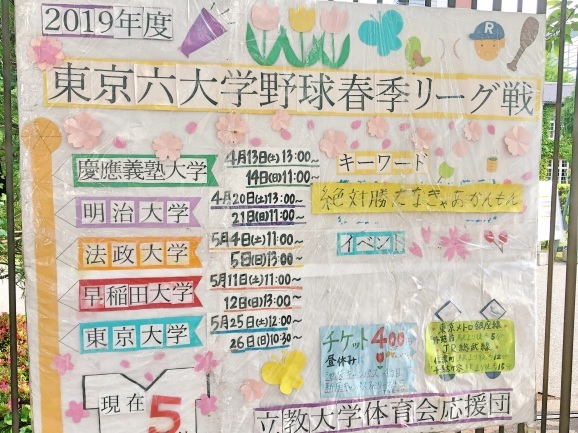 2019年度
R
東京六大学野球春季リーグ戦
慶應義塾大学
4月13日(土)13:00~
14日(日)11:00~
明治大学
4月20日(土)13:00~
21日(日)11:00~
法政大学
5月4日(土)11:00~
5日(日)13:00~
早稲田大学
5月11日(土)11:00~
12日(日)13:00~
東京大学
5月25日(土)12:00~
26日(日)10:30~
キーワード
絶対勝たなきゃあかんもん
イベント
チケット400
昼休み
東京メトロ銀座線
JR総武線
現在
5
立教大学体育会応援団